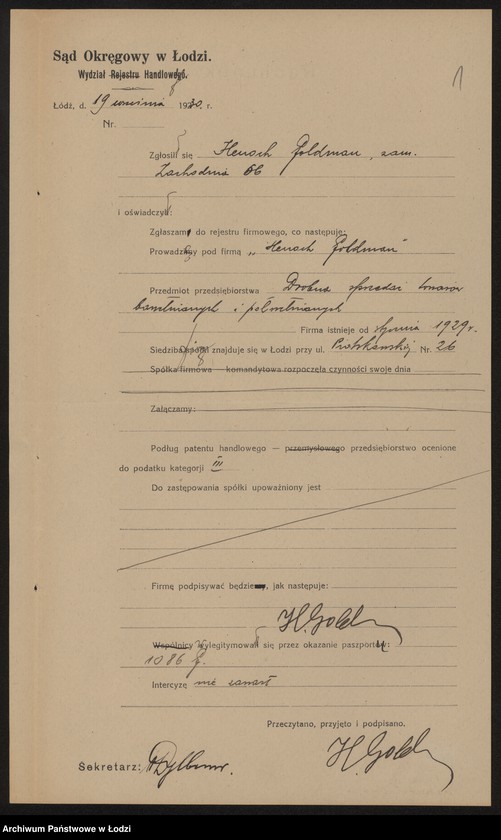 1
Sąd Okręgowy w Łodzi.
Wydział Rejestru Handlowego.
Łódź, d. 19 września 1930. r.
Nr.
Zgłosił się Henoch Goldman, zam.
Zachodnia 66
i oświadczył:
Zgłaszam do rejestru firmowego, co następuje:
Prowadzę pod firmą „Henoch Goldman”
Przedmiot przedsiębiorstwa Drobna sprzedaż towarów
bawełnianych i półwełnianych
Firma istnieje od stycznia 1929 r.
Siedziba jej znajduje się w Łodzi przy ul. Piotrkowskiej Nr. 26
Spółka firmowa — komandytowa rozpoczęła czynności swoje dnia
Załączamy:
Podług patentu handlowego — przemysłowego przedsiębiorstwo ocenione
do podatku kategorji III
Do zastępowania spółki upoważniony jest
Firmę podpisywać będzie, jak następuje:
H. Gold
Wspólnicy wylegitymował się przez okazanie paszportu:
1086
Intercyzę nie zawarł
Przeczytano, przyjęto i podpisano.
Sekretarz:
H. Gold
Archiwum Państwowe w Łodzi